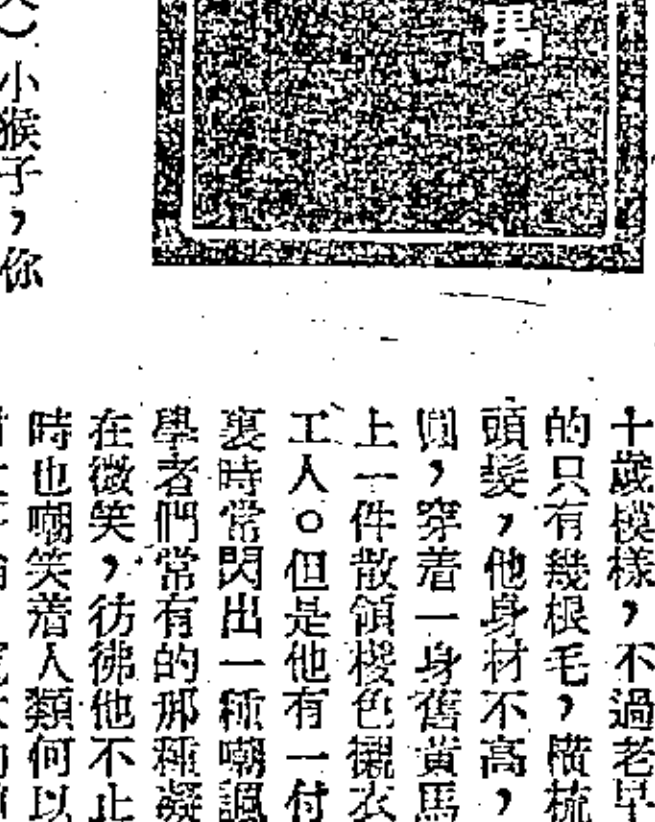 十歲模樣，不過老早
的只有幾根毛，橫梳
頭髮，他身材不高，
圓，穿着一身舊黃馬
上一件散領椶色襯衣
工人。但是他有一付
裏時常閃出一種嘲諷
學者們常有的那種凝
在微笑，彷彿他不止
時也嘲笑着人類何以
小猴子，你